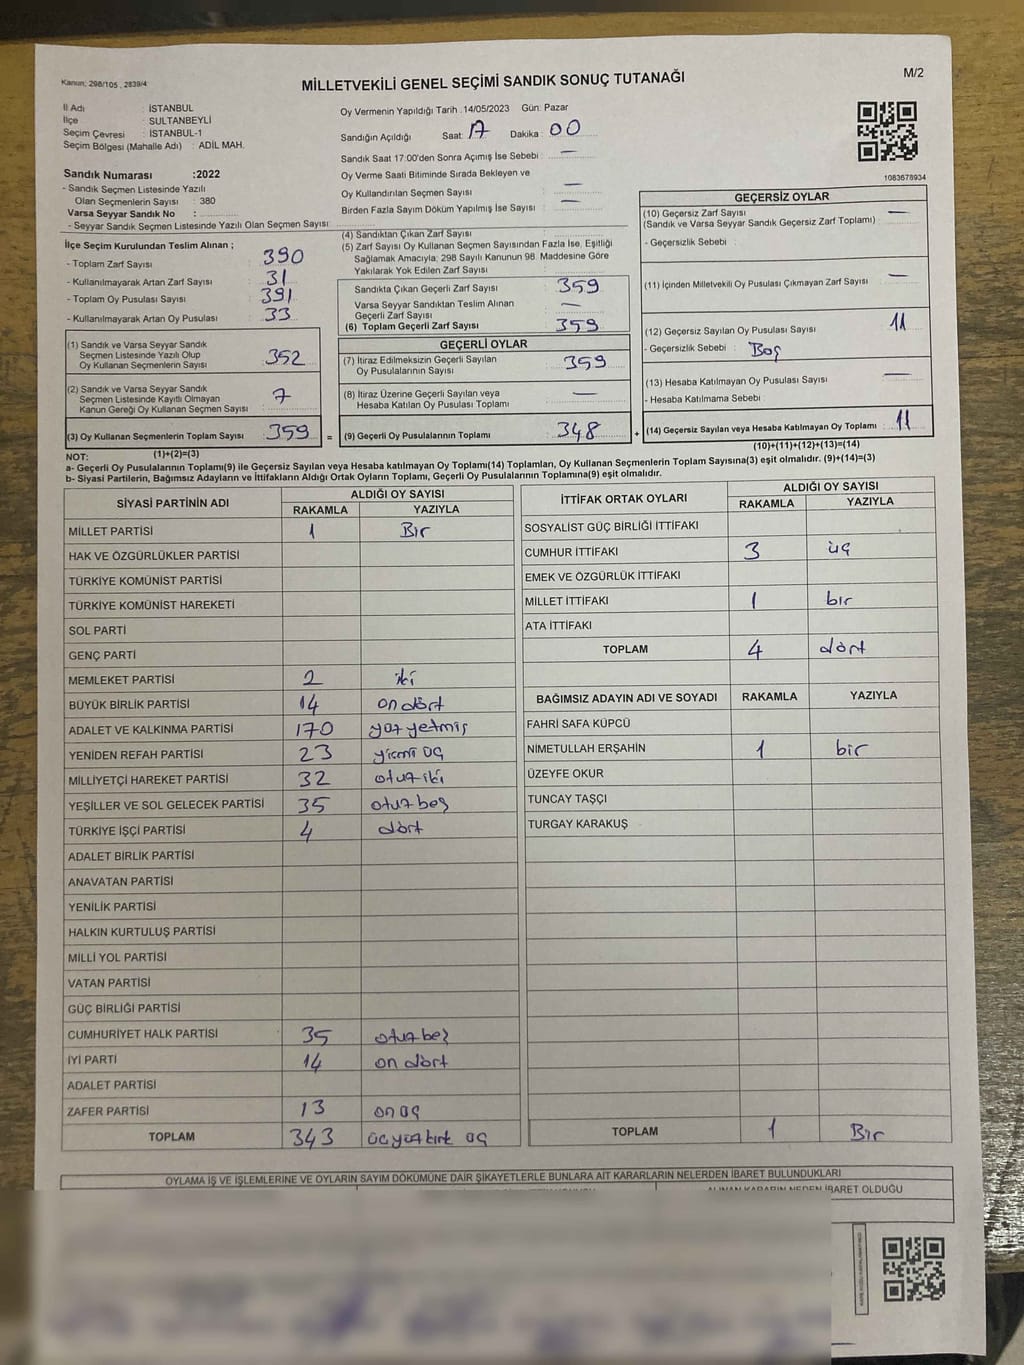 Kanun: 298/105 , 2839/4
MİLLETVEKİLİ GENEL SEÇİMİ SANDIK SONUÇ TUTANAĞI
M/2
İl Adı : İSTANBUL
İlçe : SULTANBEYLİ
Seçim Çevresi : İSTANBUL-1
Seçim Bölgesi (Mahalle Adı) : ADİL MAH.
Sandık Numarası :2022
- Sandık Seçmen Listesinde Yazılı
Olan Seçmenlerin Sayısı : 380
Varsa Seyyar Sandık No :
- Seyyar Sandık Seçmen Listesinde Yazılı Olan Seçmen Sayısı
İlçe Seçim Kurulundan Teslim Alınan ;
- Toplam Zarf Sayısı 390
- Kullanılmayarak Artan Zarf Sayısı 31
- Toplam Oy Pusulası Sayısı 391
- Kullanılmayarak Artan Oy Pusulası 33
(1) Sandık ve Varsa Seyyar Sandık
Seçmen Listesinde Yazılı Olup
Oy Kullanan Seçmenlerin Sayısı 352
(2) Sandık ve Varsa Seyyar Sandık
Seçmen Listesinde Kayıtlı Olmayan
Kanun Gereği Oy Kullanan Seçmen Sayısı 7
(3) Oy Kullanan Seçmenlerin Toplam Sayısı 359 =
(1)+(2)=(3)
Oy Vermenin Yapıldığı Tarih : 14/05/2023 Gün: Pazar
Sandığın Açıldığı Saat: 17 Dakika : 00
Sandık Saat 17:00'den Sonra Açımış İse Sebebi : —
Oy Verme Saati Bitiminde Sırada Bekleyen ve
Oy Kullandırılan Seçmen Sayısı : —
Birden Fazla Sayım Döküm Yapılmış İse Sayısı : —
(4) Sandıktan Çıkan Zarf Sayısı
(5) Zarf Sayısı Oy Kullanan Seçmen Sayısından Fazla İse, Eşitliği
Sağlamak Amacıyla; 298 Sayılı Kanunun 98. Maddesine Göre
Yakılarak Yok Edilen Zarf Sayısı
Sandıkta Çıkan Geçerli Zarf Sayısı 359
Varsa Seyyar Sandıktan Teslim Alınan
Geçerli Zarf Sayısı —
(6) Toplam Geçerli Zarf Sayısı 359
GEÇERLİ OYLAR
(7) İtiraz Edilmeksizin Geçerli Sayılan
Oy Pusulalarının Sayısı 359
(8) İtiraz Üzerine Geçerli Sayılan veya
Hesaba Katılan Oy Pusulası Toplamı —
(9) Geçerli Oy Pusulalarının Toplamı 348 +
1083678934
GEÇERSİZ OYLAR
(10) Geçersiz Zarf Sayısı —
(Sandık ve Varsa Seyyar Sandık Geçersiz Zarf Toplamı)
- Geçersizlik Sebebi :
(11) İçinden Milletvekili Oy Pusulası Çıkmayan Zarf Sayısı —
(12) Geçersiz Sayılan Oy Pusulası Sayısı : 11
- Geçersizlik Sebebi : Boş
(13) Hesaba Katılmayan Oy Pusulası Sayısı —
- Hesaba Katılmama Sebebi :
(14) Geçersiz Sayılan veya Hesaba Katılmayan Oy Toplamı : 11
(10)+(11)+(12)+(13)=(14)
NOT:
a- Geçerli Oy Pusulalarının Toplamı(9) ile Geçersiz Sayılan veya Hesaba katılmayan Oy Toplamı(14) Toplamları, Oy Kullanan Seçmenlerin Toplam Sayısına(3) eşit olmalıdır. (9)+(14)=(3)
b- Siyasi Partilerin, Bağımsız Adayların ve İttifakların Aldığı Ortak Oyların Toplamı, Geçerli Oy Pusulalarının Toplamına(9) eşit olmalıdır.
SİYASİ PARTİNİN ADI ALDIĞI OY SAYISI
RAKAMLA YAZIYLA
MİLLET PARTİSİ 1 Bir
HAK VE ÖZGÜRLÜKLER PARTİSİ
TÜRKİYE KOMÜNİST PARTİSİ
TÜRKİYE KOMÜNİST HAREKETİ
SOL PARTİ
GENÇ PARTİ
MEMLEKET PARTİSİ 2 iki
BÜYÜK BİRLİK PARTİSİ 14 on dört
ADALET VE KALKINMA PARTİSİ 170 yüz yetmiş
YENİDEN REFAH PARTİSİ 23 yirmi üç
MİLLİYETÇİ HAREKET PARTİSİ 32 otuz iki
YEŞİLLER VE SOL GELECEK PARTİSİ 35 otuz beş
TÜRKİYE İŞÇİ PARTİSİ 4 dört
ADALET BİRLİK PARTİSİ
ANAVATAN PARTİSİ
YENİLİK PARTİSİ
HALKIN KURTULUŞ PARTİSİ
MİLLİ YOL PARTİSİ
VATAN PARTİSİ
GÜÇ BİRLİĞİ PARTİSİ
CUMHURİYET HALK PARTİSİ 35 otuz beş
İYİ PARTİ 14 on dört
ADALET PARTİSİ
ZAFER PARTİSİ 13 on üç
TOPLAM 343 üç yüz kırk üç
İTTİFAK ORTAK OYLARI ALDIĞI OY SAYISI
RAKAMLA YAZIYLA
SOSYALİST GÜÇ BİRLİĞİ İTTİFAKI
CUMHUR İTTİFAKI 3 üç
EMEK VE ÖZGÜRLÜK İTTİFAKI
MİLLET İTTİFAKI 1 bir
ATA İTTİFAKI
TOPLAM 4 dört
BAĞIMSIZ ADAYIN ADI VE SOYADI RAKAMLA YAZIYLA
FAHRİ SAFA KÜPCÜ
NİMETULLAH ERŞAHİN 1 bir
ÜZEYFE OKUR
TUNCAY TAŞÇI
TURGAY KARAKUŞ
TOPLAM 1 Bir
OYLAMA İŞ VE İŞLEMLERİNE VE OYLARIN SAYIM DÖKÜMÜNE DAİR ŞİKAYETLERLE BUNLARA AİT KARARLARIN NELERDEN İBARET BULUNDUKLARI
ALINAN KARARIN NEDEN İBARET OLDUĞU